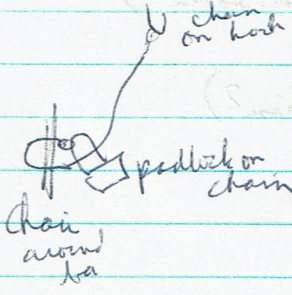 chain
on hook
padlock on
chain
Chain
around
ba